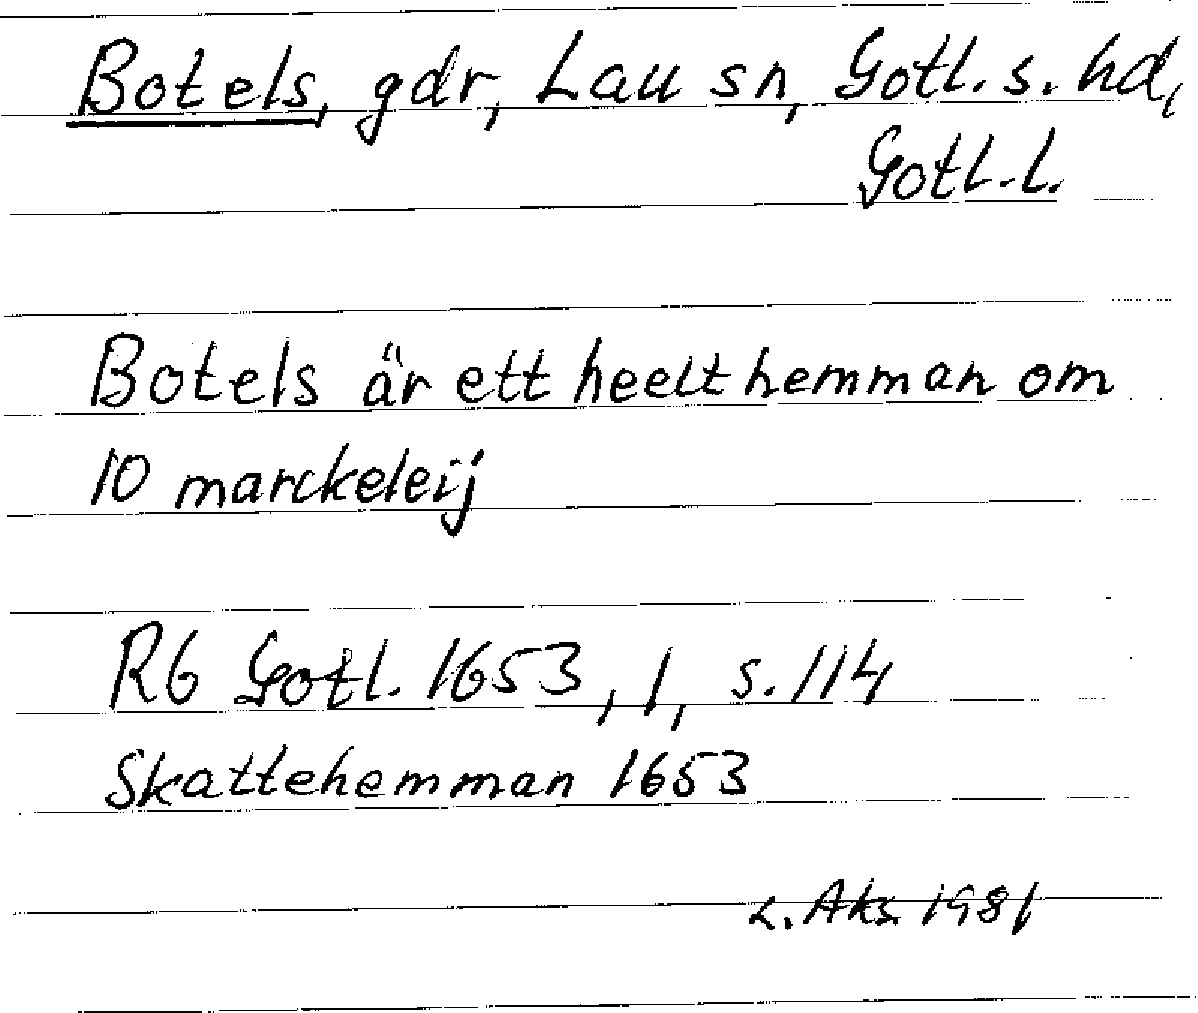 Botels, gdr, Lau sn, Gotl. s. hd,
Gotl. l.
Botels är ett heelt hemman om
10 marckeleij
RG Gotl. 1653, 1, s. 114
Skattehemman 1653
L. Aks. 1981